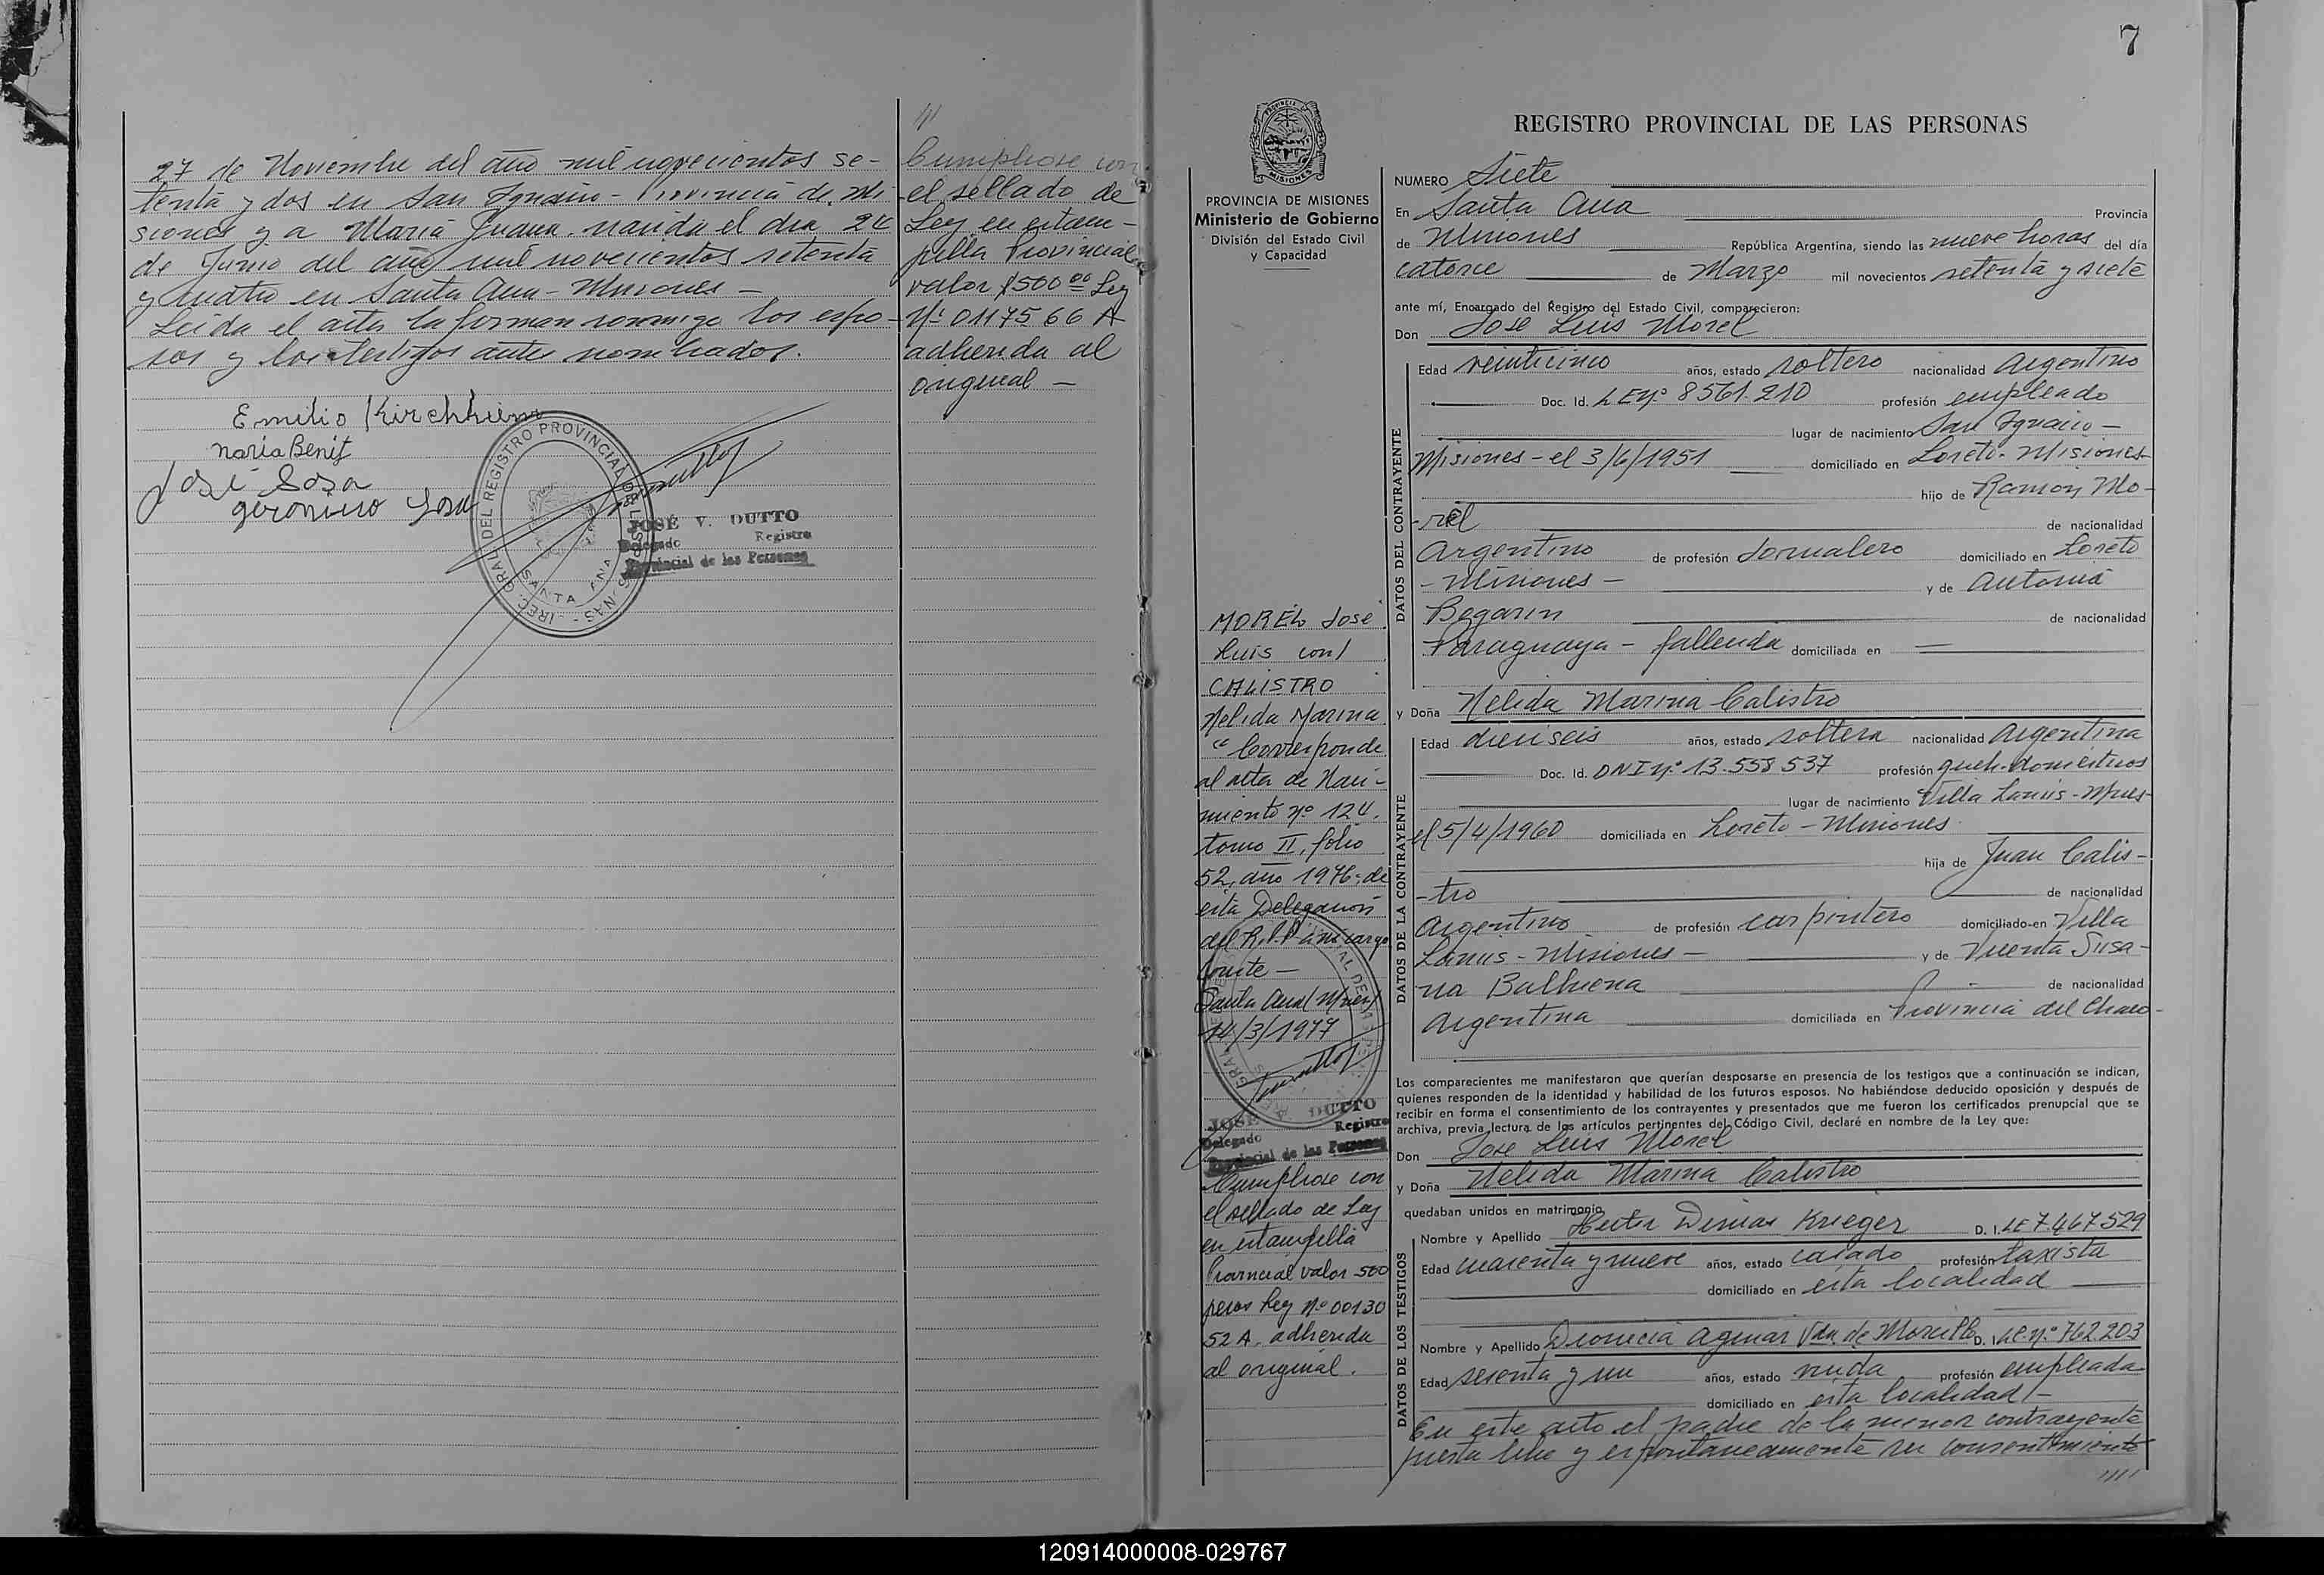 27 de Noviembre del año mil novecientos se-
tenta y dos en San Ignacio - Provincia de Mi
siones y a Maria Juana nacida el dia 24
de Junio del año mil novecientos setenta
y cuatro en Santa Ana - Misiones -
Leida el acta la forman conmigo los espo-
sos y los testigos antes nombrados.
Emilio Kirchheim
Maria Benit
José Sosa
Geronimo Sosa
DIREC. GRAL DEL REGISTRO PROVINCIAL DE LAS PERSONAS
SANTA ANA
JOSÉ V. DUTTO
Delegado Registro
Provincial de las Personas
Cumpliose con
el sellado de
Ley en estam-
pilla Provincial
valor $500 00 Ley
Nº 0117566 A
adherida al
original -
7
PROVINCIA DE MISIONES
Ministerio de Gobierno
División del Estado Civil
y Capacidad
MOREL José
Luis con/
CALISTRO
Nelida Marina
"Corresponde
al acta de Naci-
miento nº 124.
tomo II, folio
52, año 1976; de
esta Delegación
del R.P.P a mi cargo
conste -
Santa Ana (Mnes)
14/3/1977
JOSÉ DUTTO
Delegado Registro
Provincial de las Personas
Cumpliose con
el sellado de Ley
en estampilla
Provincial valor 500
pesos Ley Nº 00130
52 A. adherida
al original.
REGISTRO PROVINCIAL DE LAS PERSONAS
NUMERO Siete
En Santa Ana Provincia
de Misiones República Argentina, siendo las nueve horas del día
catorce de Marzo mil novecientos setenta y siete
ante mí, Encargado del Registro del Estado Civil, comparecieron:
Don José Luis Morel
DATOS DEL CONTRAYENTE
Edad veinticinco años, estado soltero nacionalidad Argentino
Doc. Id. L E nº 8561.210 profesión empleado
lugar de nacimiento San Ignacio -
Misiones - el 3/6/1951 domiciliado en Loreto - Misiones
hijo de Ramón Mo-
-rel de nacionalidad
Argentino de profesión Jornalero domiciliado en Loreto
- Misiones - y de Antonia
Begarin de nacionalidad
Paraguaya - fallecida domiciliada en —
y Doña Nelida Marina Calistro
DATOS DE LA CONTRAYENTE
Edad dieciseis años, estado soltera nacionalidad Argentina
Doc. Id. DNI nº 13.558.537 profesión queh. domesticos
lugar de nacimiento Villa Lanús - Mnes-
el 5/4/1960 domiciliada en Loreto - Misiones
hija de Juan Calis-
-tro de nacionalidad
Argentino de profesión carpintero domiciliado en Villa
Lanús - Misiones - y de Vicenta Susa-
na Balbuena de nacionalidad
Argentina domiciliada en Provincia del Chaco-
Los comparecientes me manifestaron que querían desposarse en presencia de los testigos que a continuación se indican,
quienes responden de la identidad y habilidad de los futuros esposos. No habiéndose deducido oposición y después de
recibir en forma el consentimiento de los contrayentes y presentados que me fueron los certificados prenupcial que se
archiva, previa lectura de los artículos pertinentes del Código Civil, declaré en nombre de la Ley que:
Don José Luis Morel
y Doña Nelida Marina Calistro
quedaban unidos en matrimonio
DATOS DE LOS TESTIGOS
Nombre y Apellido Hector Dimas Krieger D. I. LE 7.467.529
Edad cuarenta y nueve años, estado casado profesión taxista
domiciliado en esta localidad
Nombre y Apellido Dionicia Aguiar Vda. de Morcillo D. I. LC. nº 762.203
Edad sesenta y un años, estado viuda profesión empleada
domiciliado en esta localidad -
En este acto el padre de la menor contrayente
presta libre y espontaneamente su consentimiento
/////
120914000008-029767